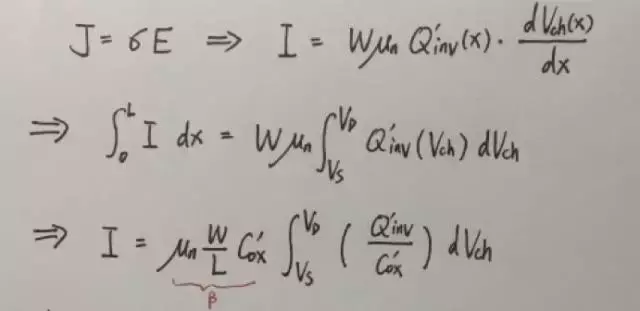 J = σE ⇒ I = Wμₙ Q'inv(x) · dVch(x)/dx
⇒ ∫₀ᴸ I dx = Wμₙ ∫_{VS}^{VD} Q'inv(Vch) dVch
⇒ I = μₙ W/L C'ox ∫_{VS}^{VD} (Q'inv/C'ox) dVch
β